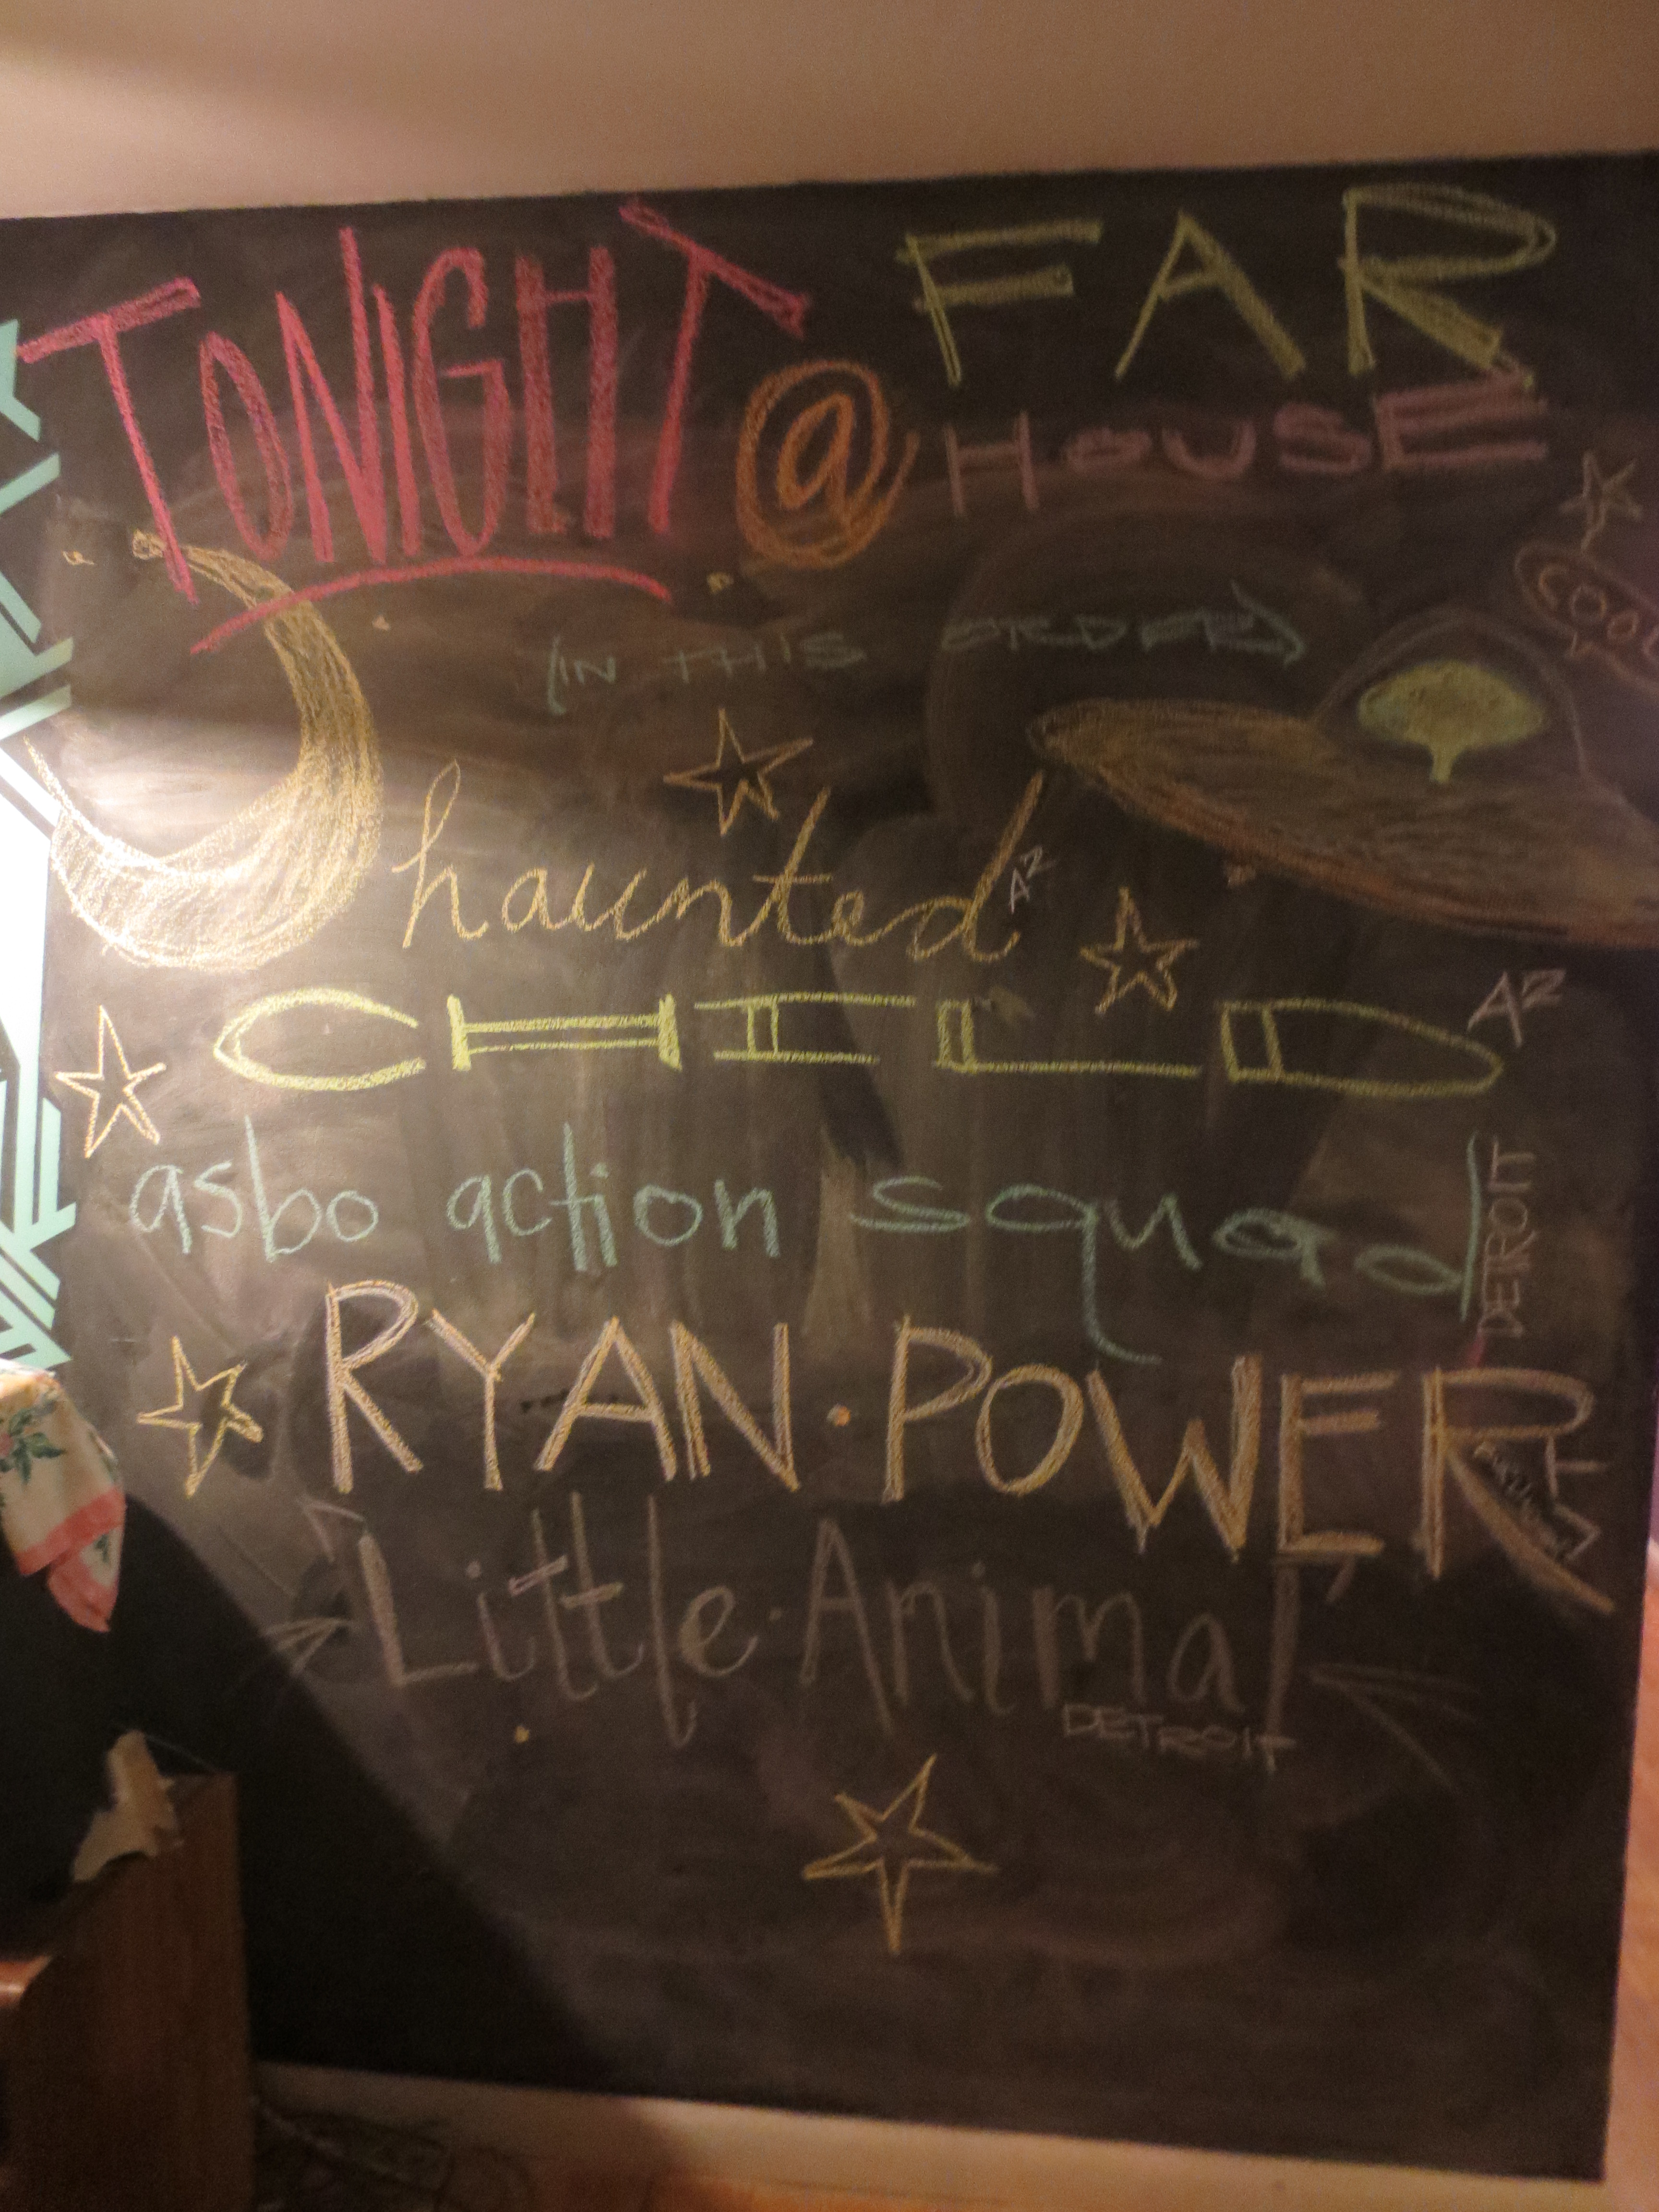 TONIGHT @ FAR
HOUSE
COOL
(IN THIS ORDER)
haunted A2
CHILD A2
asbo action squad DETROIT
RYAN POWER VT
Little Animal
DETROIT